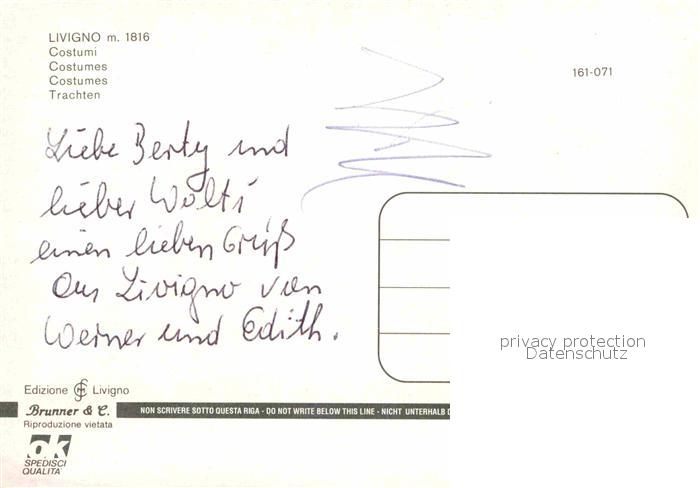 LIVIGNO m. 1816
Costumi
Costumes
Costumes
Trachten
161-071
Liebe Berty und
lieber Wolti
einen lieben Grüß
Aus Livigno von
Werner und Edith.
privacy protection
Datenschutz
Edizione Livigno
Brunner & C.
Riproduzione vietata
NON SCRIVERE SOTTO QUESTA RIGA - DO NOT WRITE BELOW THIS LINE - NICHT UNTERHALB
ok
SPEDISCI
QUALITA'